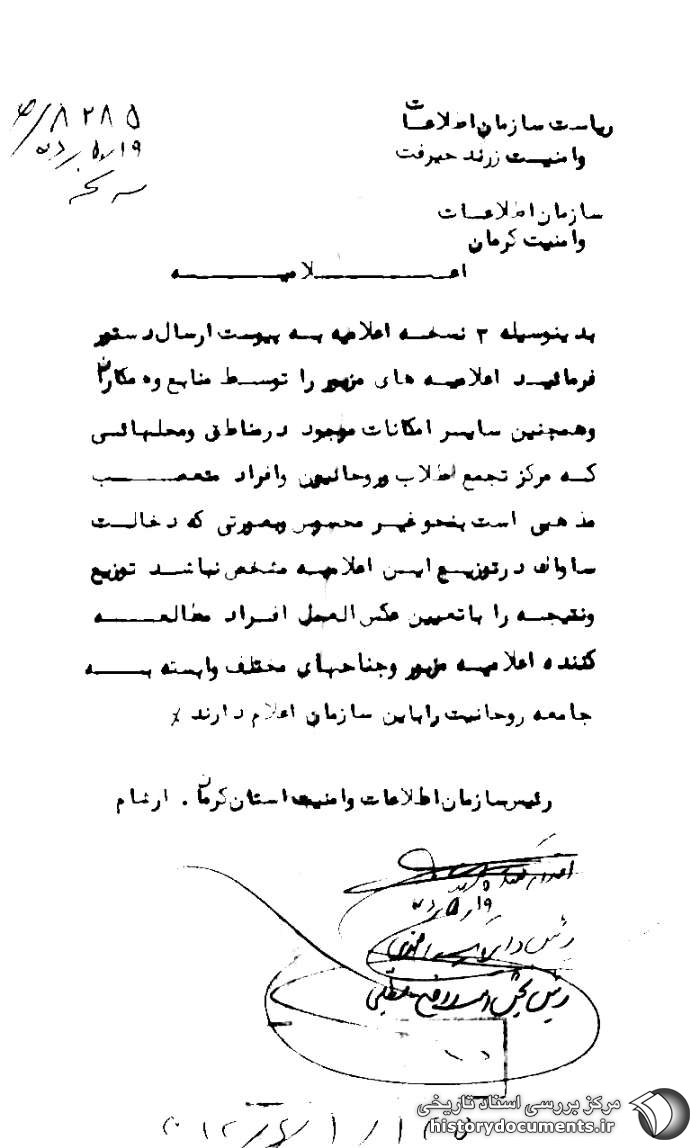 ۸۲۸۵/ه
ریاست سازمان اطلاعات
وامنیت زرند جیرفت
سازمان اطلاعات
وامنیت کرمان
اعلامیه
بدینوسیله ۲ نسخه اعلامیه به پیوست ارسال دستور
فرمائید اعلامیه های مزبور را توسط منابع وهمکاران
وهمچنین سایر امکانات موجود درمناطق ومحلهائی
که مرکز تجمع اطلاب وروحانیون وافراد متعصب
مذهبی است بنحو غیر محسوس وبصورتی که دخالت
ساواک درتوزیع این اعلامیه مشخص نباشد توزیع
ونتیجه را باتعیین عکس العمل افراد مطالعه
کننده اعلامیه مزبور وجناحهای مختلف وابسته به
جامعه روحانیت راباین سازمان اعلام دارند
رئیس سازمان اطلاعات وامنیت استان کرمان . ارشام
رئیس
رئیس بخش
مرکز بررسی اسناد تاریخی
historydocuments.ir